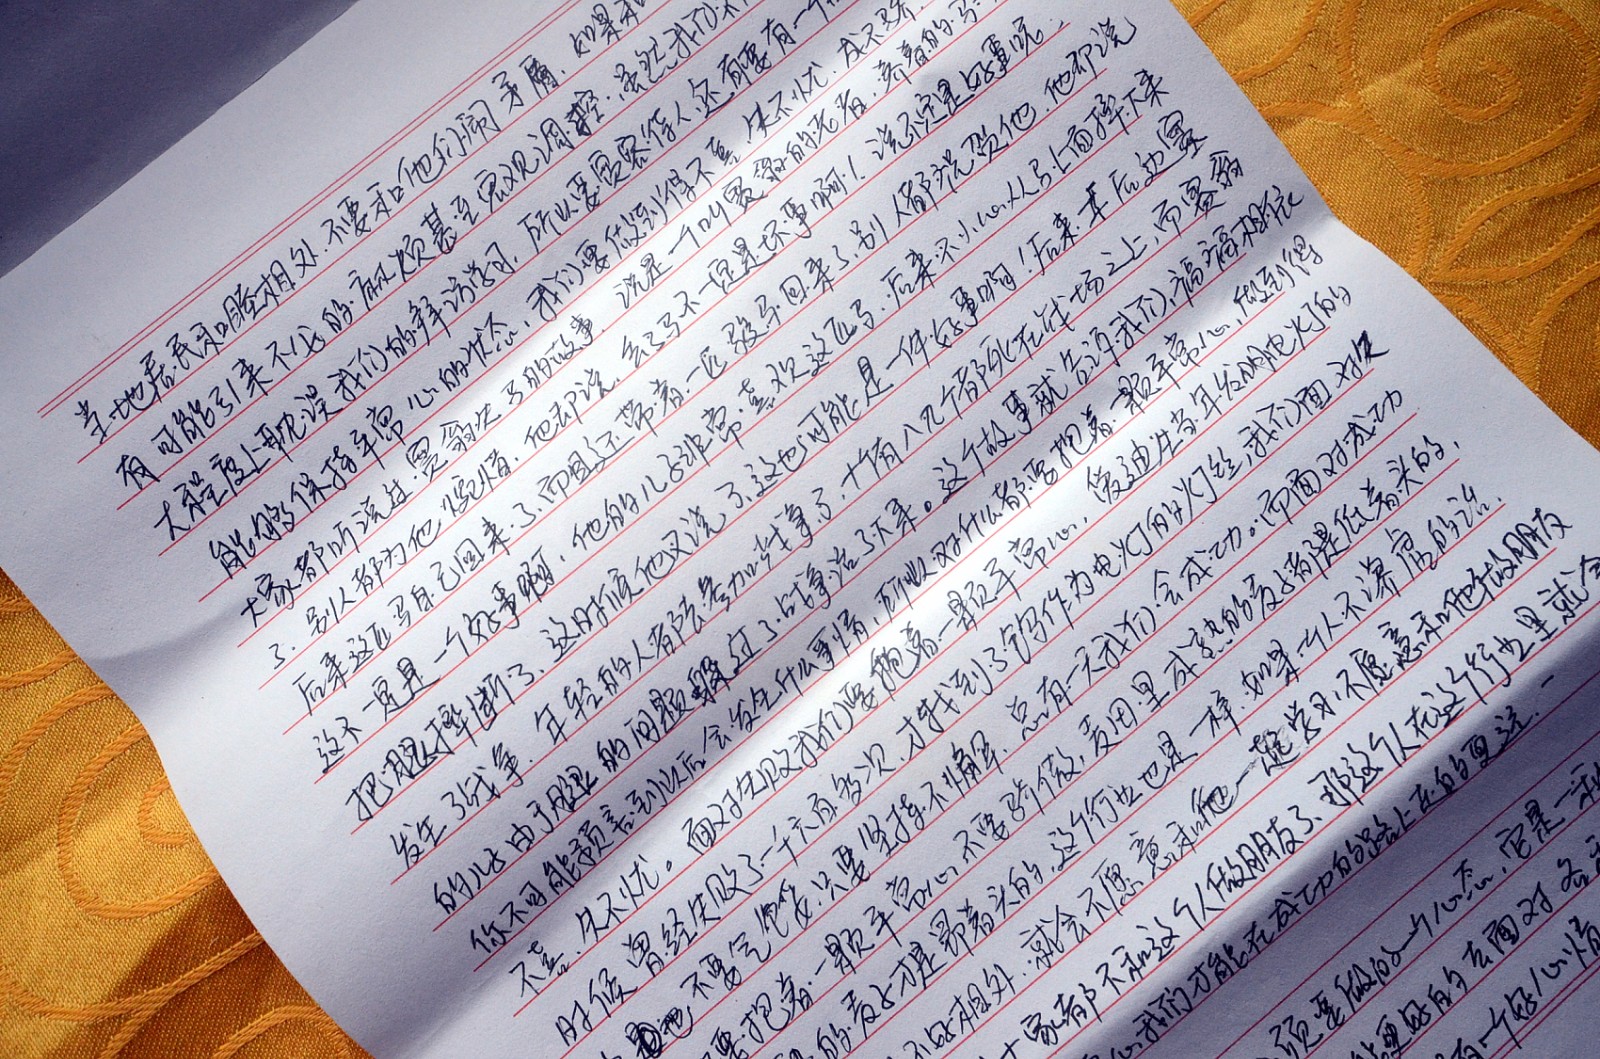 当地居民和睦相处，不要和他们闹矛盾，如果
有可能引来不必的麻烦甚至宏观调控，虽然我们
大程度上耽误我们的拜访学习，所以要宽容待人还有要有一个
能够保持平常心的状态，我们要做到得不喜，失不忧，成不骄
大家都听说过，塞翁失马的故事，说是一个叫塞翁的老者，养着的马
了，别人都为他惋惜，他却说，丢了马不一定是坏事啊！说不定是好事呢，
后来这匹马自己回来了，而且还带着一匹骏马回来了，别人都祝贺他，他却说
这不一定是一个好事啊，他的儿子非常喜欢这匹马，后来不小心从马上面摔下来
把腿摔断了，这时候他又说了，这也可能是一件好事啊！后来，在后边塞
发生了战争，年轻的人都去参加战争了，十有八九个都死在战场之上，而塞翁
的儿子由于腿的问题躲过了战争活了下来。这个故事就告诉我们，福祸相依
你不可能预言到以后会发生什么事情，所以对什么都要抱着一颗平常心，做到得
不喜，失不忧。面对失败我们要抱着一颗平常心，爱迪生当年发明电灯的
时候曾经失败了一千六百多次，才找到了钨作为电灯的灯丝，我们面对失
不要气馁，只要坚持不懈，总有一天我们会成功。而面对成功
要抱着一颗平常心，不要骄傲，麦田里成熟的麦子都是低着头的，
的麦子才是昂着头的，这个行业也是一样，如果一个人不谦虚的话，
不好相处，就会不愿意和他一起学习，不愿意和他做朋友
大家都不和这个人做朋友了，那这个人在这个行业里就会
心，我们才能在成功的路上走的更远。
须要做的一个心态，它是一种
能更好的去面对各
有一个好心情